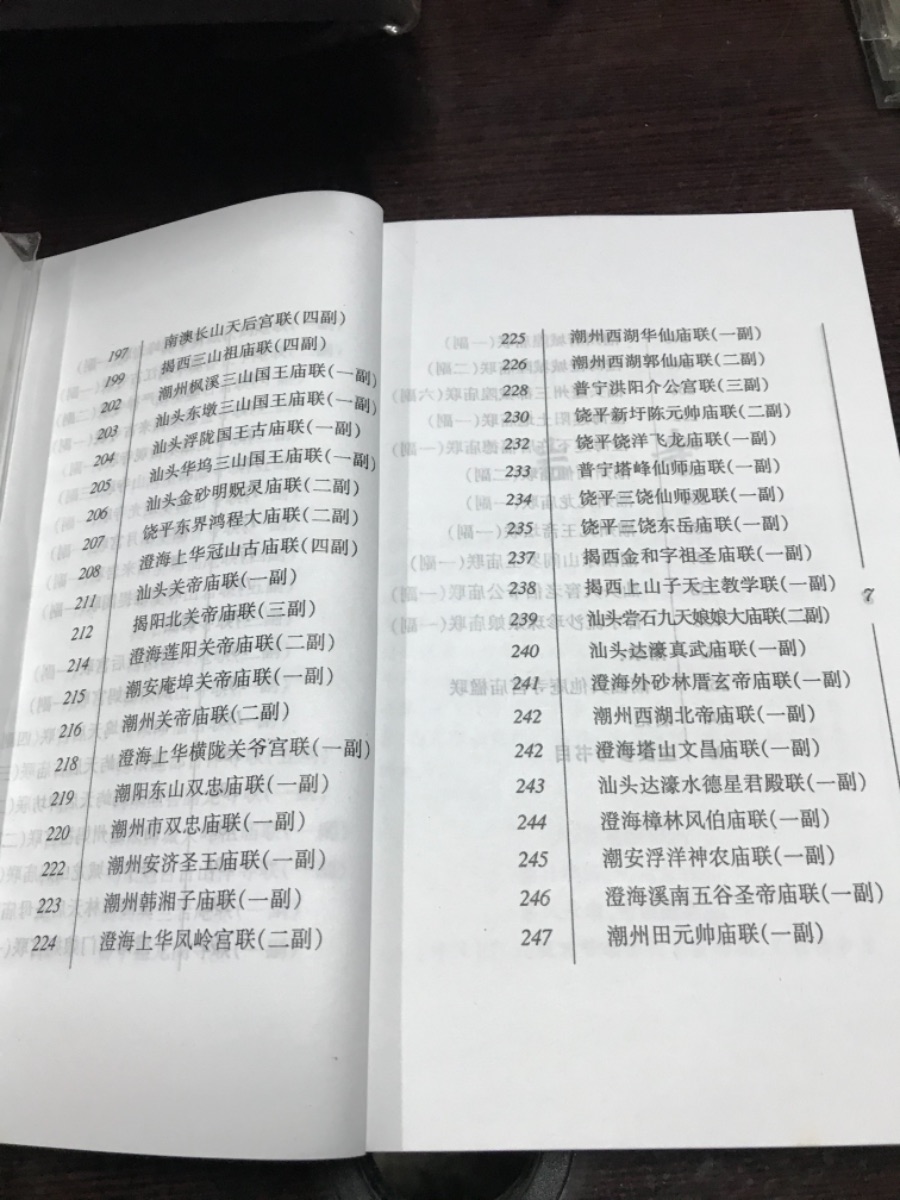 197 南澳长山天后宫联(四副)
199 揭西三山祖庙联(四副)
202 潮州枫溪三山国王庙联(一副)
203 汕头东墩三山国王庙联(一副)
204 汕头浮陇国王古庙联(一副)
205 汕头华坞三山国王庙联(一副)
206 汕头金砂明贶灵庙联(二副)
207 饶平东界鸿程大庙联(二副)
208 澄海上华冠山古庙联(四副)
211 汕头关帝庙联(一副)
212 揭阳北关帝庙联(三副)
214 澄海莲阳关帝庙联(二副)
215 潮安庵埠关帝庙联(一副)
216 潮州关帝庙联(二副)
218 澄海上华横陇关爷宫联(一副)
219 潮阳东山双忠庙联(一副)
220 潮州市双忠庙联(一副)
222 潮州安济圣王庙联(一副)
223 潮州韩湘子庙联(一副)
224 澄海上华凤岭宫联(二副)
225 潮州西湖华仙庙联(一副)
226 潮州西湖郭仙庙联(二副)
228 普宁洪阳介公宫联(三副)
230 饶平新圩陈元帅庙联(二副)
232 饶平饶洋飞龙庙联(一副)
233 普宁塔峰仙师庙联(一副)
234 饶平三饶仙师观联(一副)
235 饶平三饶东岳庙联(一副)
237 揭西金和字祖圣庙联(一副)
238 揭西上山子天主教学联(一副)
239 汕头礐石九天娘娘大庙联(二副)
240 汕头达濠真武庙联(一副)
241 澄海外砂林厝玄帝庙联(一副)
242 潮州西湖北帝庙联(一副)
242 澄海塔山文昌庙联(一副)
243 汕头达濠水德星君殿联(一副)
244 澄海樟林风伯庙联(一副)
245 潮安浮洋神农庙联(一副)
246 澄海溪南五谷圣帝庙联(一副)
247 潮州田元帅庙联(一副)
7